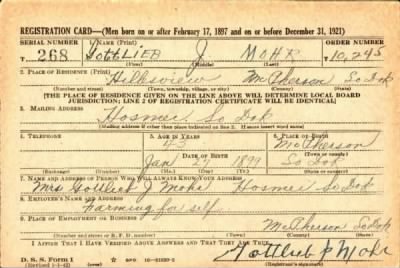 REGISTRATION CARD—(Men born on or after February 17, 1897 and on or before December 31, 1921)
SERIAL NUMBER 1. NAME (Print) ORDER NUMBER
T 268 GOTTLIEB J MOHR T 10,245
(First) (Middle) (Last)
2. PLACE OF RESIDENCE (Print)
Hillsview McPherson So Dak
(Number and street) (Town, township, village, or city) (County) (State)
[THE PLACE OF RESIDENCE GIVEN ON THE LINE ABOVE WILL DETERMINE LOCAL BOARD
JURISDICTION; LINE 2 OF REGISTRATION CERTIFICATE WILL BE IDENTICAL]
3. MAILING ADDRESS
Hosmer So Dak
(Mailing address if other than place indicated on line 2. If same insert word same)
4. TELEPHONE 5. AGE IN YEARS 6. PLACE OF BIRTH
43 McPherson
DATE OF BIRTH (Town or county)
Jan 1899 So Dak
(Exchange) (Number) (Mo.) (Day) (Yr.) (State or country)
7. NAME AND ADDRESS OF PERSON WHO WILL ALWAYS KNOW YOUR ADDRESS
Mrs Gottlieb J Mohr Hosmer So Dak
8. EMPLOYER'S NAME AND ADDRESS
Farming for self
9. PLACE OF EMPLOYMENT OR BUSINESS
McPherson So Dak
(Number and street or R. F. D. number) (Town) (County) (State)
I AFFIRM THAT I HAVE VERIFIED ABOVE ANSWERS AND THAT THEY ARE TRUE.
D. S. S. Form 1 GPO Gottlieb J Mohr
(Revised 1-1-42) (over) (Registrant's signature)